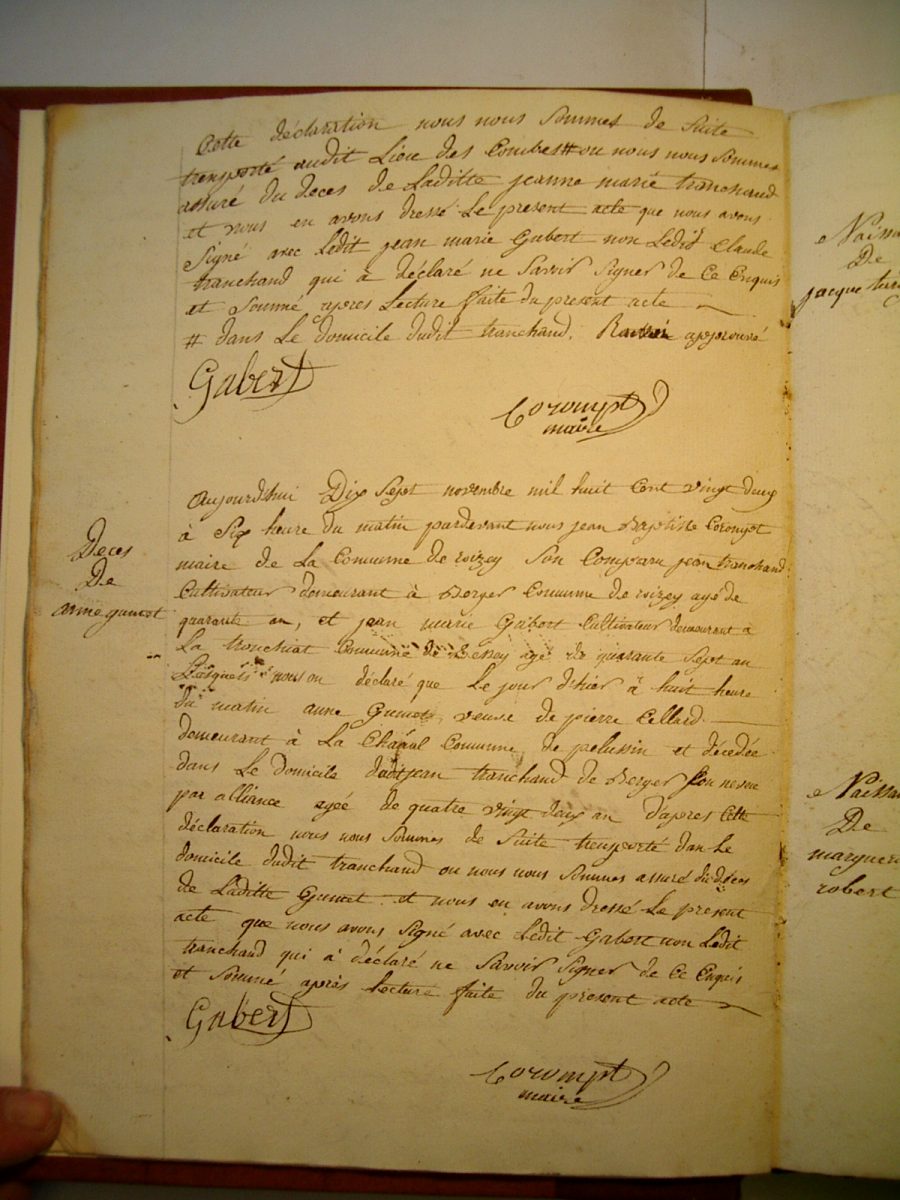 Cette déclaration nous nous sommes de suite
transporté audit Lieu des Combes # ou nous nous sommes
assuré du deces de Laditte jeanne marie tranchand
et nous en avons dressé Le present acte que nous avons
Signé avec Ledit jean marie Gabert non Ledit Claude
tranchand qui à déclaré ne Savoir Signer de Ce Enquis
et Sommé apres Lecture faite du present acte
# dans Le domicile dudit tranchand. approuvé
Gabert
Corompt
maire
Deces
De
anne gumot
Aujourd'hui Dix Sept novembre mil huit Cent vingt deux
à Six heure du matin pardevant nous jean Baptiste Corompt
maire de La Commune de roizey Son Comparu jean tranchand
Cultivateur demeurant à Berger Commune de roizey agé de
quarante an, et jean marie Gabert Cultivateur demeurant a
La tronchiat Commune de Bessey agé de quarante Sept an
Lesquels nous on déclaré que Le jour d'hier à huit heure
du matin anne Gumot veuve de pierre Cellard
demeurant à La Commune de pelussin et décedée
dans Le domicile dudit jean tranchand de Berger Son neveu
par alliance agée de quatre vingt deux an d'apres Cette
déclaration nous nous Sommes de Suite transporté dan Le
domicile dudit tranchand ou nous nous Sommes assuré du deces
de Laditte Gumot et nous en avons dressé Le present
acte que nous avons Signé avec Ledit Gabert non Ledit
tranchand qui à déclaré ne Savoir Signer de Ce Enquis
et Sommé après Lecture faite du present acte
Gabert
Corompt
maire
De
De
robert